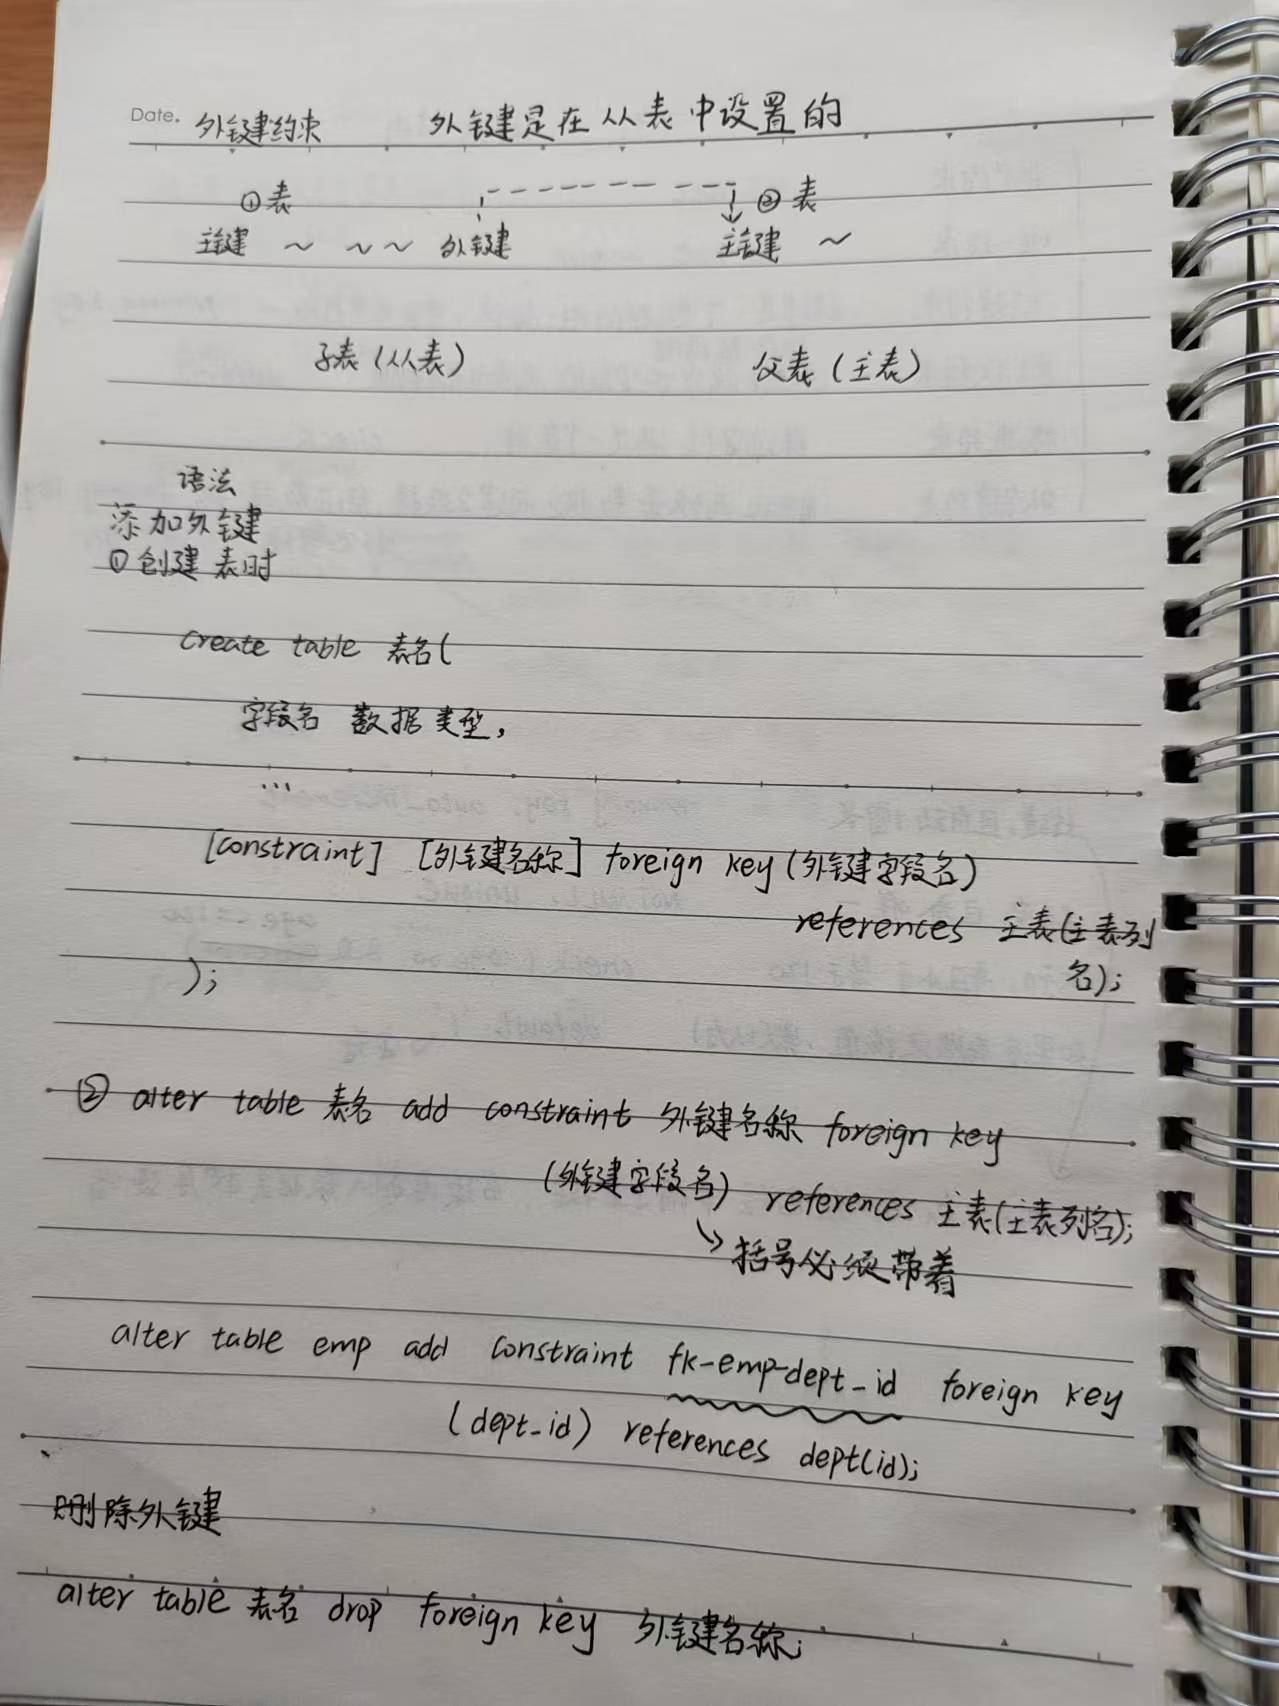 Date. 外键约束 外键是在从表中设置的
①表 ②表
主键 ~ ~ ~ 外键 主键 ~
子表(从表) 父表(主表)
语法
添加外键
①创建表时
create table 表名(
字段名 数据类型,
...
[constraint] [外键名称] foreign key (外键字段名)
references 主表(主表列
名);
);
② alter table 表名 add constraint 外键名称 foreign key
(外键字段名) references 主表(主表列名);
↳ 括号必须带着
alter table emp add constraint fk-emp-dept_id foreign key
(dept_id) references dept(id);
删除外键
alter table 表名 drop foreign key 外键名称;